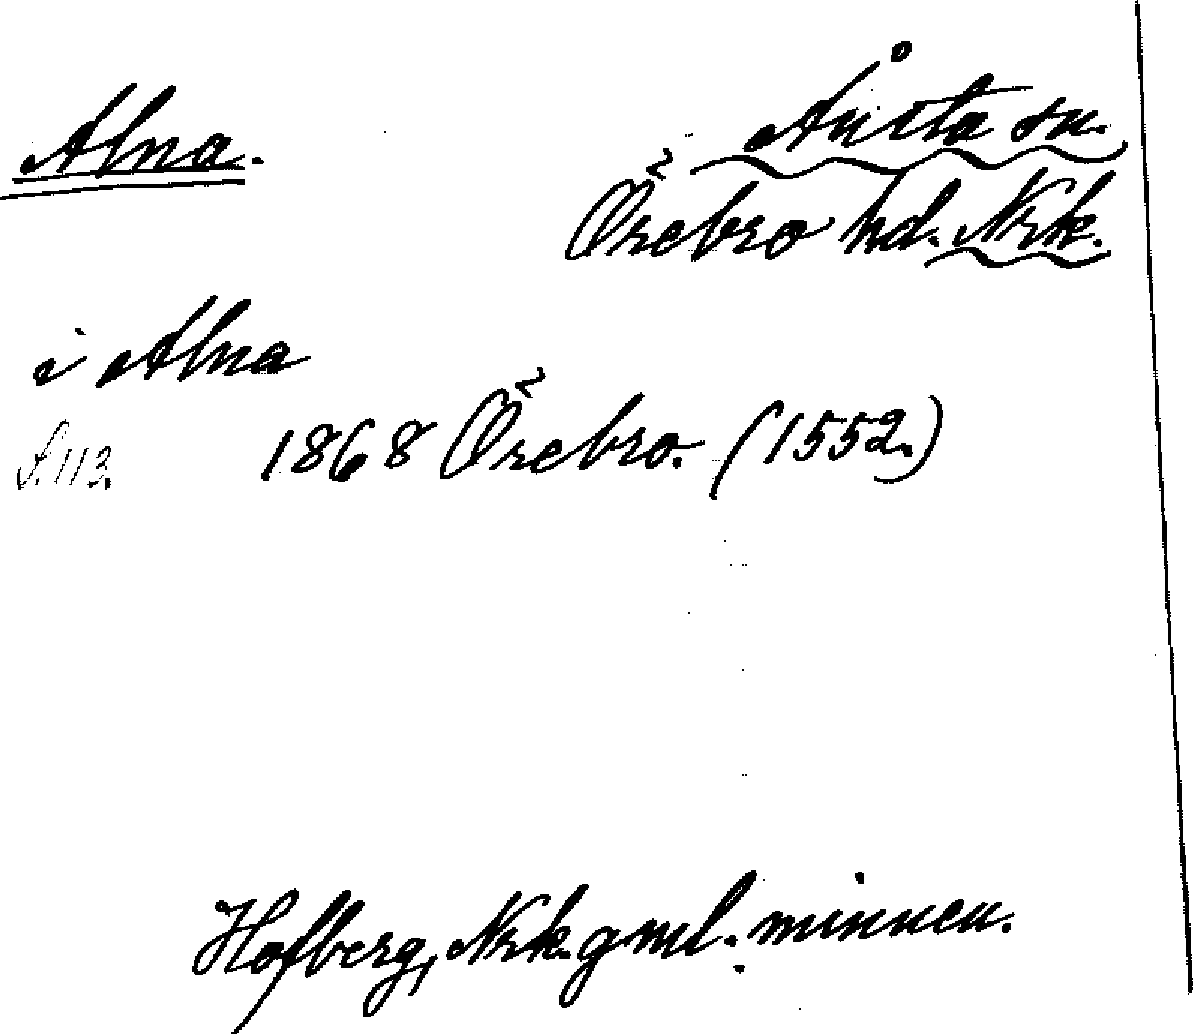 Alna.
Ånsta sn.
Örebro hd. Nrk.
i Alna
S. 113. 1868 Örebro. (1552.)
Hofberg, Nrk. gml. minnen.